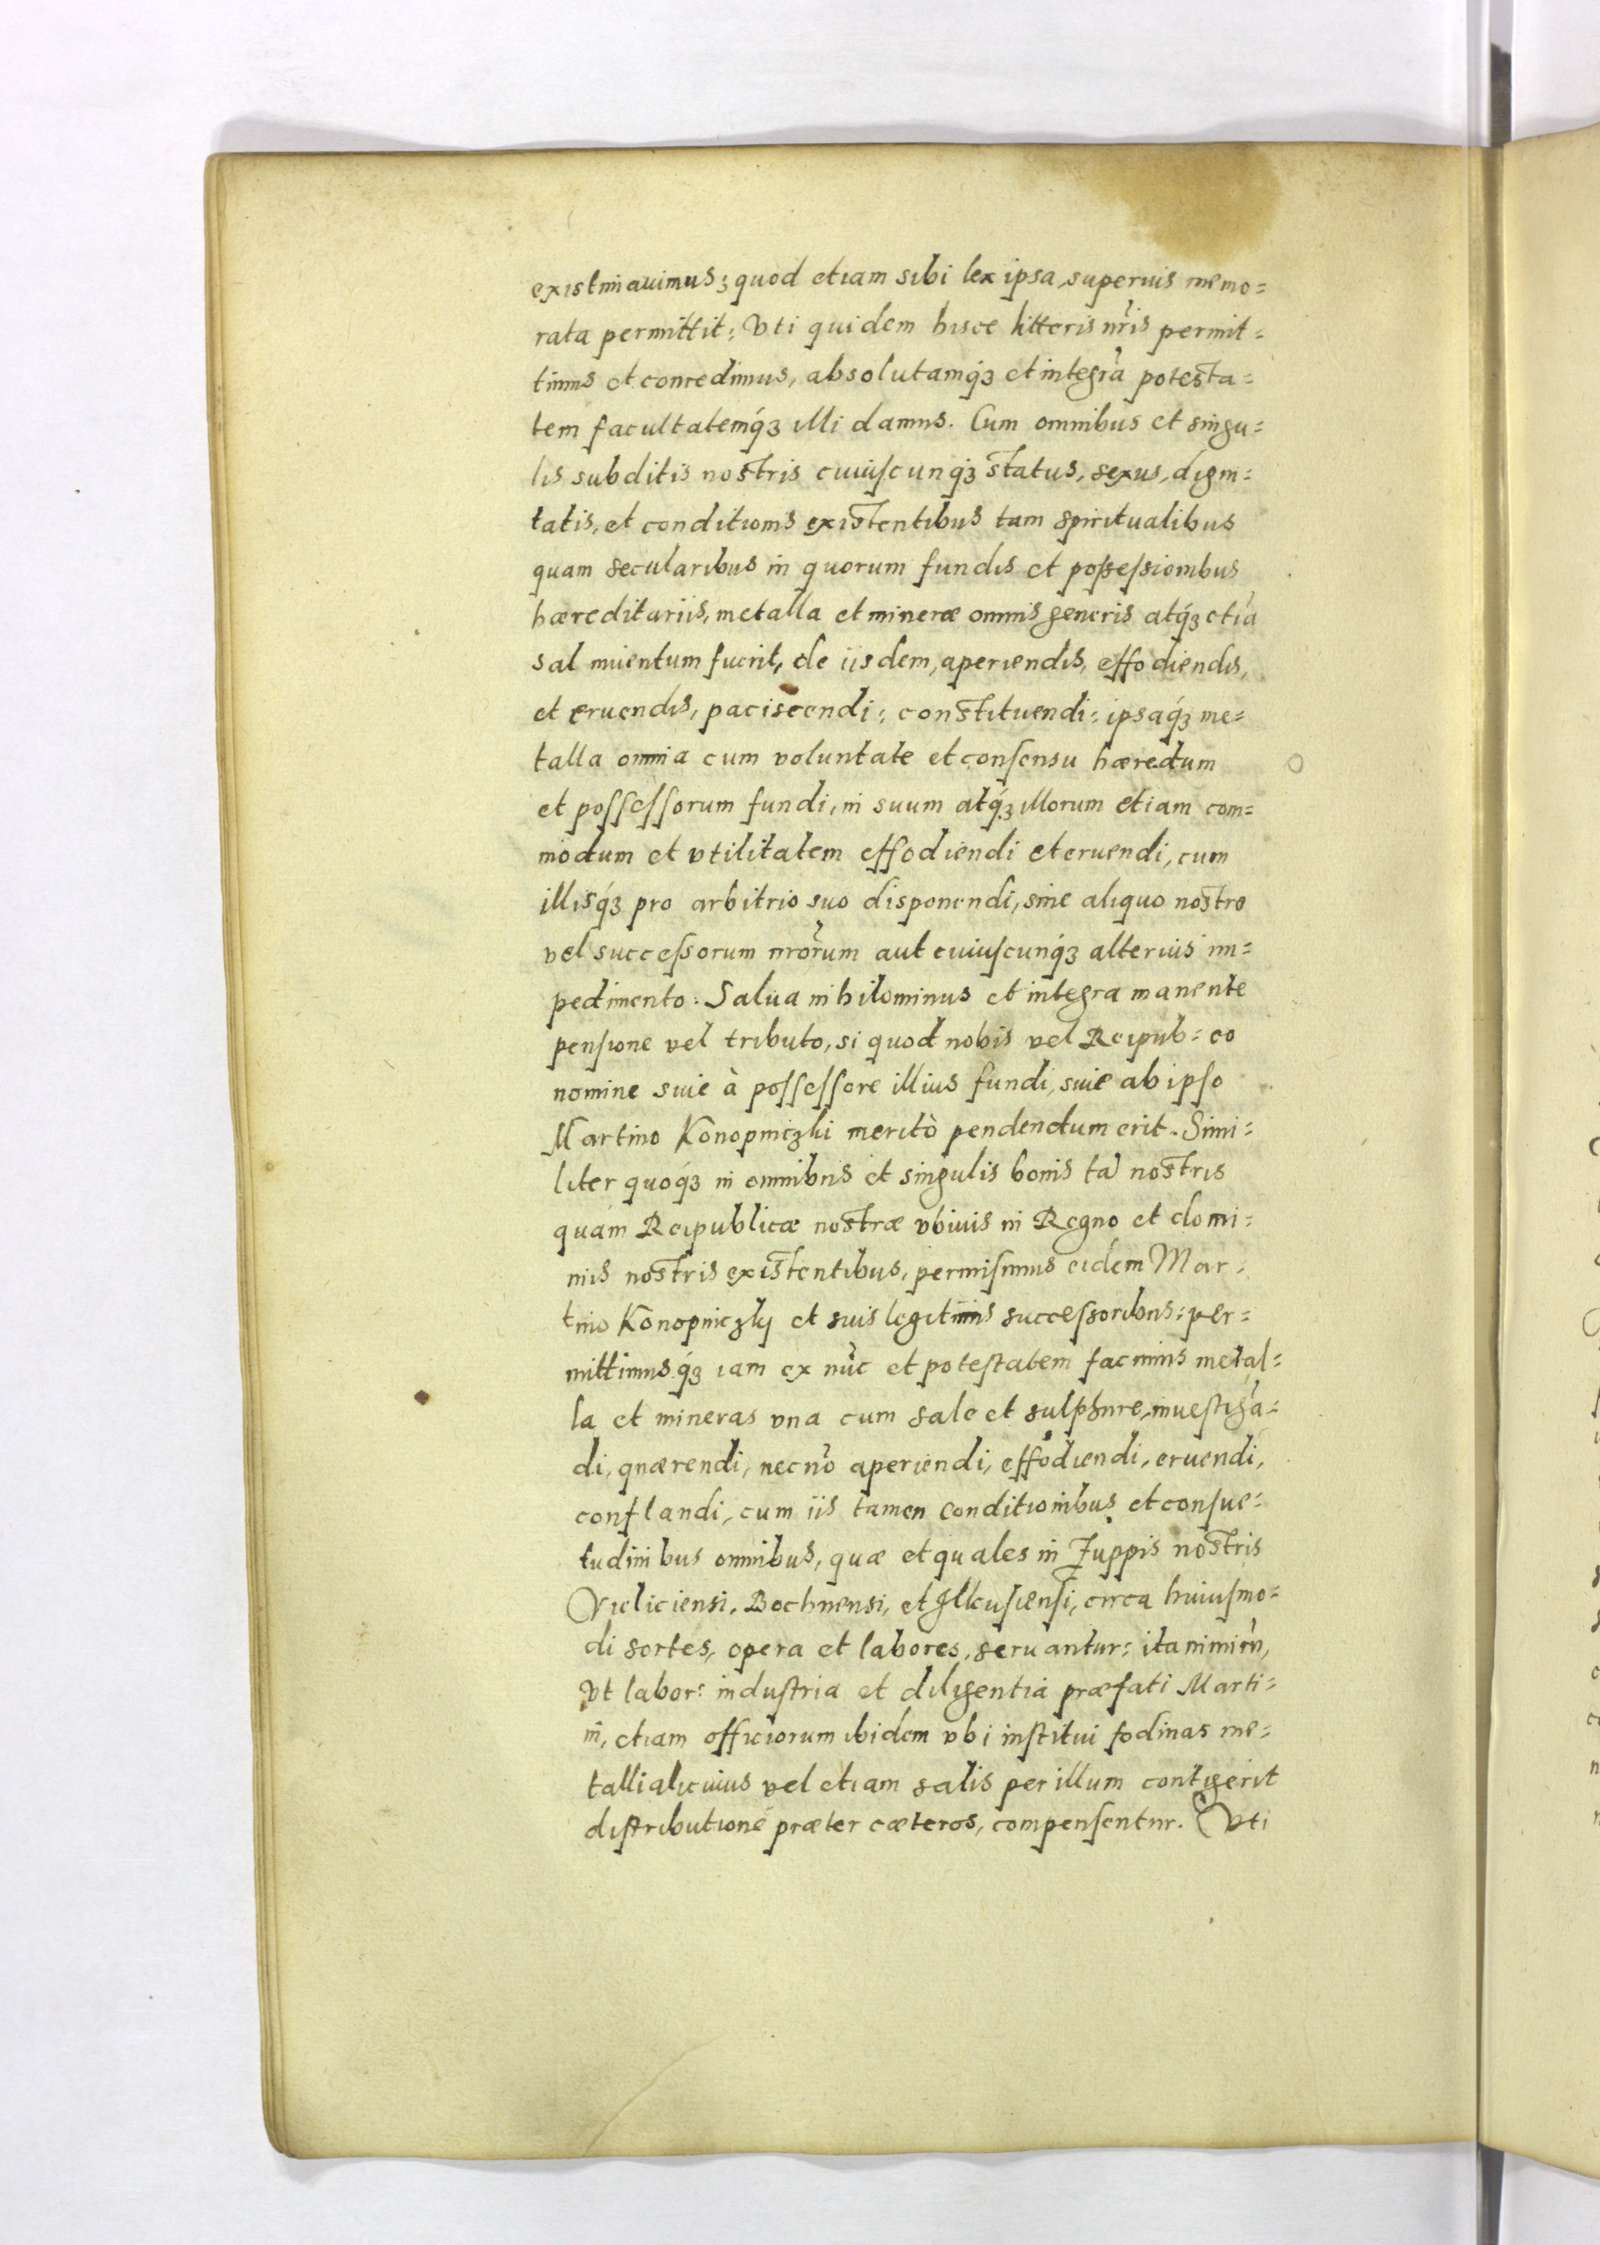 existimauimus; quod etiam sibi lex ipsa, superius memo=
rata permittit: Vti quidem hisce litteris nr̃is permit=
timus et concedimus, absolutamq́ꝫ et integrã potesta=
tem facultatemq́ꝫ illi damus. Cum omnibus et singu=
lis subditis nostris cuiuſcunq́ꝫ status, sexus, digni=
tatis, et conditionis existentibus tam spiritualibus
quam secularibus in quorum fundis et poſseſsionibus
hæreditariis, metalla et mineræ omnis generis atq́ꝫ etiã
sal inuentum fuerit, de iisdem, aperiendis, effodiendis,
et eruendis, paciscendi: constituendi: ipsaq́ꝫ me=
talla omnia cum voluntate et conſensu hæredum
et poſſeſſorum fundi, in suum atq́ꝫ illorum etiam com=
modum et vtilitatem effodiendi et eruendi, cum
illisq́ꝫ pro arbitrio suo disponendi, sine aliquo nostro
vel succeſsorum nrõrum aut cuiuſcunq́ꝫ alterius im=
pedimento. Salua nihilominus et integra manente
penſione vel tributo, si quod nobis vel Reipub= eo
nomine siue à poſſeſſore illius fundi, siue ab ipſo
Martino Konopniczki meritò pendendum erit. Simi=
liter quoq́ꝫ in omnibus et singulis bonis tã nostris
quàm Reipublicæ nostræ vbiuis in Regno et domi=
niis nostris existentibus, permiſimus eidem Mar=
tino Konopniczky et suis legitimis succeſsoribus: per=
mittimusq́ꝫ iam ex nũc et poteſtatem facimus metal=
la et mineras vna cum sale et sulphure, inueſtigã=
di, quærendi, necnõ aperiendi, effodiendi, eruendi,
conflandi, cum iis tamen conditionibus et conſue=
tudinibus omnibus, quæ et quales in Zuppis nostris
Vieliciensi, Bochnensi, et Ilkusienſi, circa huiuſmo=
di sortes, opera et labores, seruantur: ita nimirũ,
Vt labor: induſtria et diligentia præfati Marti=
ni, etiam officiorum ibidem vbi inſtitui fodinas me=
talli alicuius vel etiam salis per illum contigerit
diſtributionè præter cæteros, compenſentur. Vti